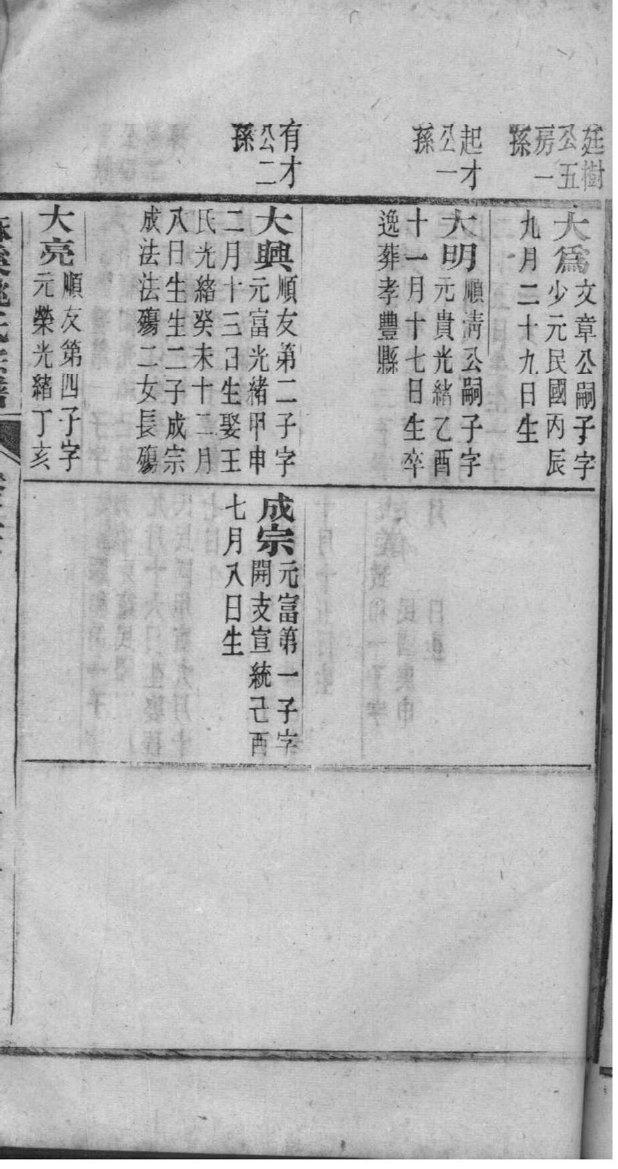 廷樹
公五
房一
孫
大為文章公嗣子字
少元民國丙辰
九月二十九日生
起才
公一
孫
大明順清公嗣子字
元貴光緒乙酉
十一月十七日生卒
逸葬孝豐縣
有才
公二
孫
大興順友第二子字
元富光緒甲申
二月十三日生娶王
氏光緒癸未十二月
八日生生二子成宗
成法法殤二女長殤
大亮順友第四子字
元榮光緒丁亥
成宗元富第一子字
開支宣統己酉
七月八日生
氏宗譜